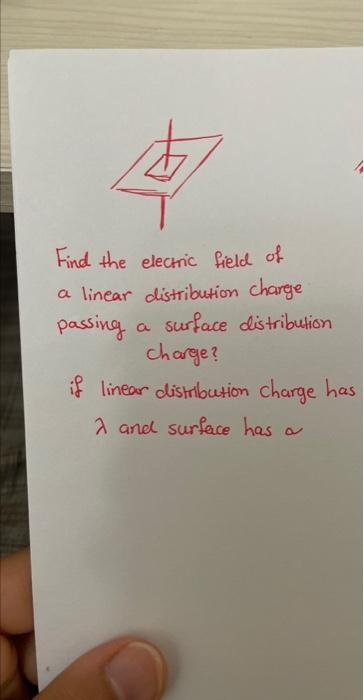 Find the electric field of
a linear distribution charge
passing a surface distribution
charge?
if linear distribution charge has
λ and surface has a